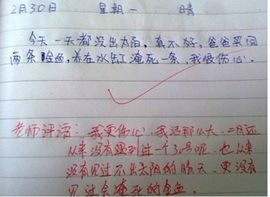 2月30日 星期一 晴
今天一天都没出太阳，真不好，爸爸买回
两条金鱼，养在水缸淹死一条，我很伤心。
老师评语：我更伤心，我活那么大，二月还
从来没有遇到过一个30号呢，也从来
没有见过不出太阳的晴天，更没有
见过会淹死的金鱼。